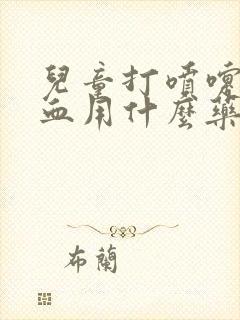 兒童打噴嚏
血用什麼藥
布蘭